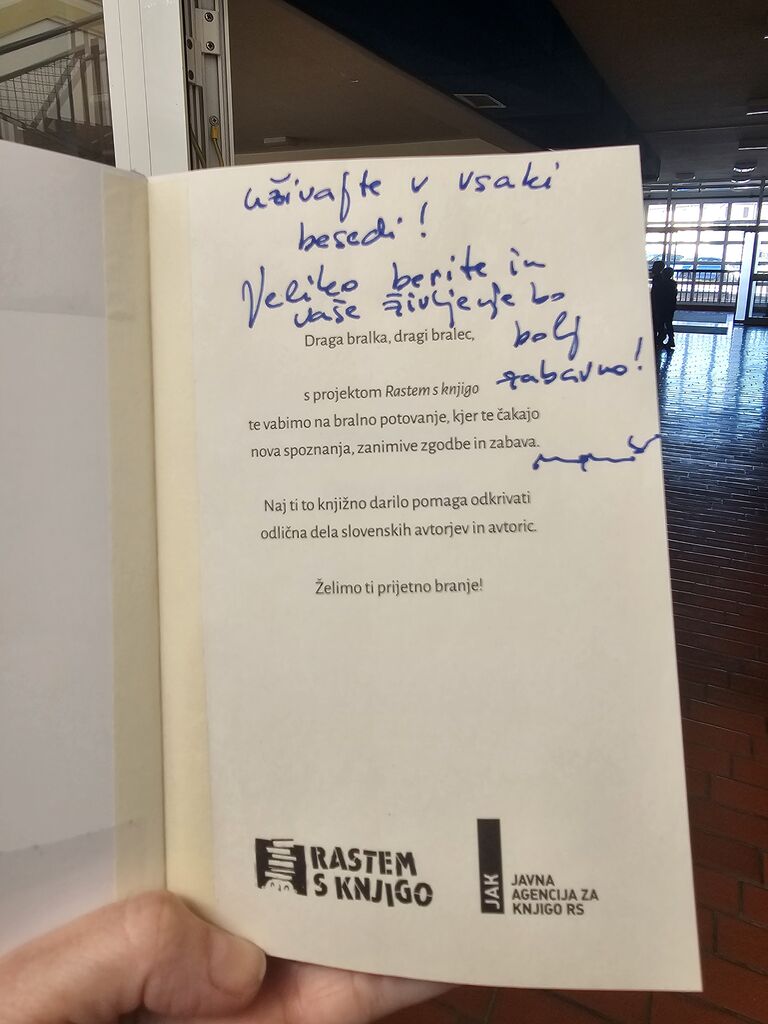 uživajte v vsaki
besedi!
Veliko berite in
vaše življenje bo
bolj
zabavno!
Draga bralka, dragi bralec,
s projektom Rastem s knjigo
te vabimo na bralno potovanje, kjer te čakajo
nova spoznanja, zanimive zgodbe in zabava.
Naj ti to knjižno darilo pomaga odkrivati
odlična dela slovenskih avtorjev in avtoric.
Želimo ti prijetno branje!
RASTEM
S KNJIGO
JAK
JAVNA
AGENCIJA ZA
KNJIGO RS